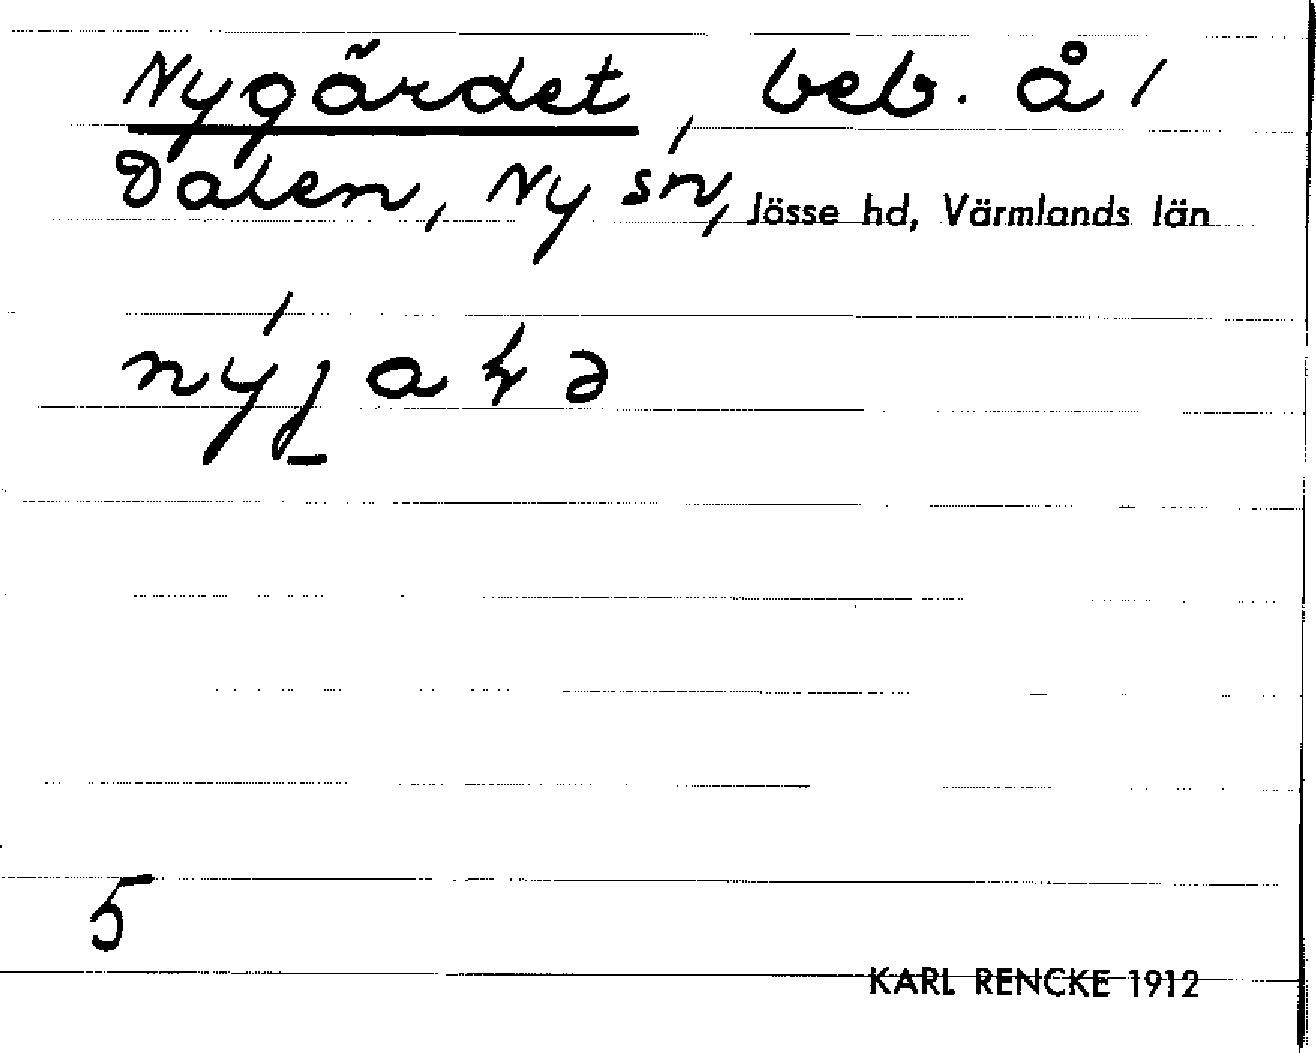 Nygärdet, beb. å 1
Dalen, Ny sn, Jösse hd, Värmlands län
5
KARL RENCKE 1912